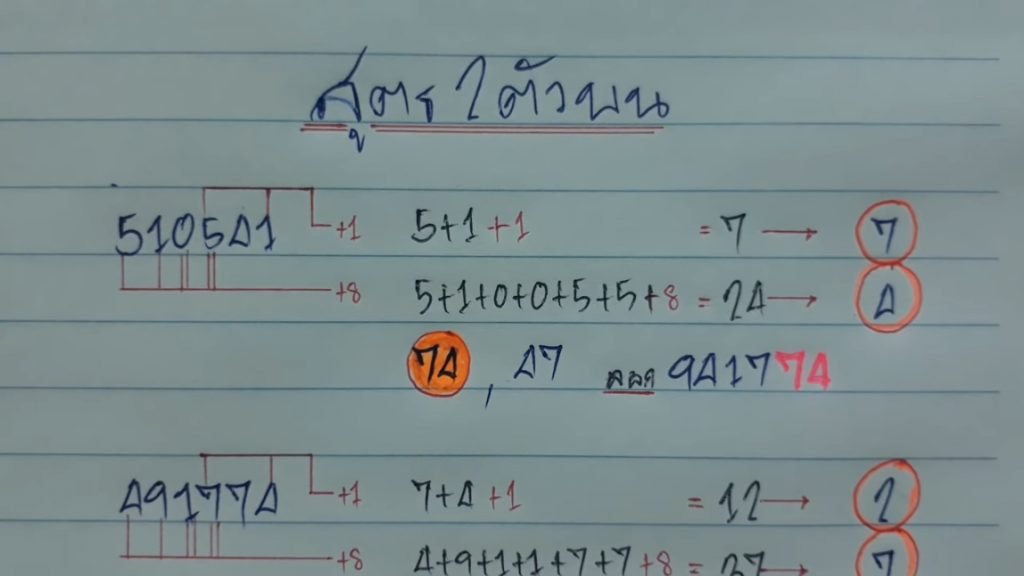 สูตร 2 ตัวบน
510541 +1 5+1+1 = 7 → 7
+8 5+1+0+0+5+5+8 = 24 → 4
74 , 47 ออก 941774
491774 +1 7+4+1 = 12 → 2
+8 4+9+1+1+7+7+8 = 37 → 7